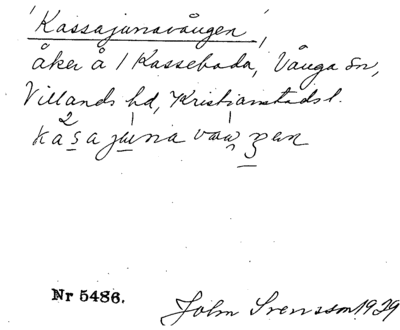 'Kassajunavången',
åker å 1 Kasseboda, Vånga sn,
Villands hd, Kristianstads l.
Nr 5486.
John Svensson 1929